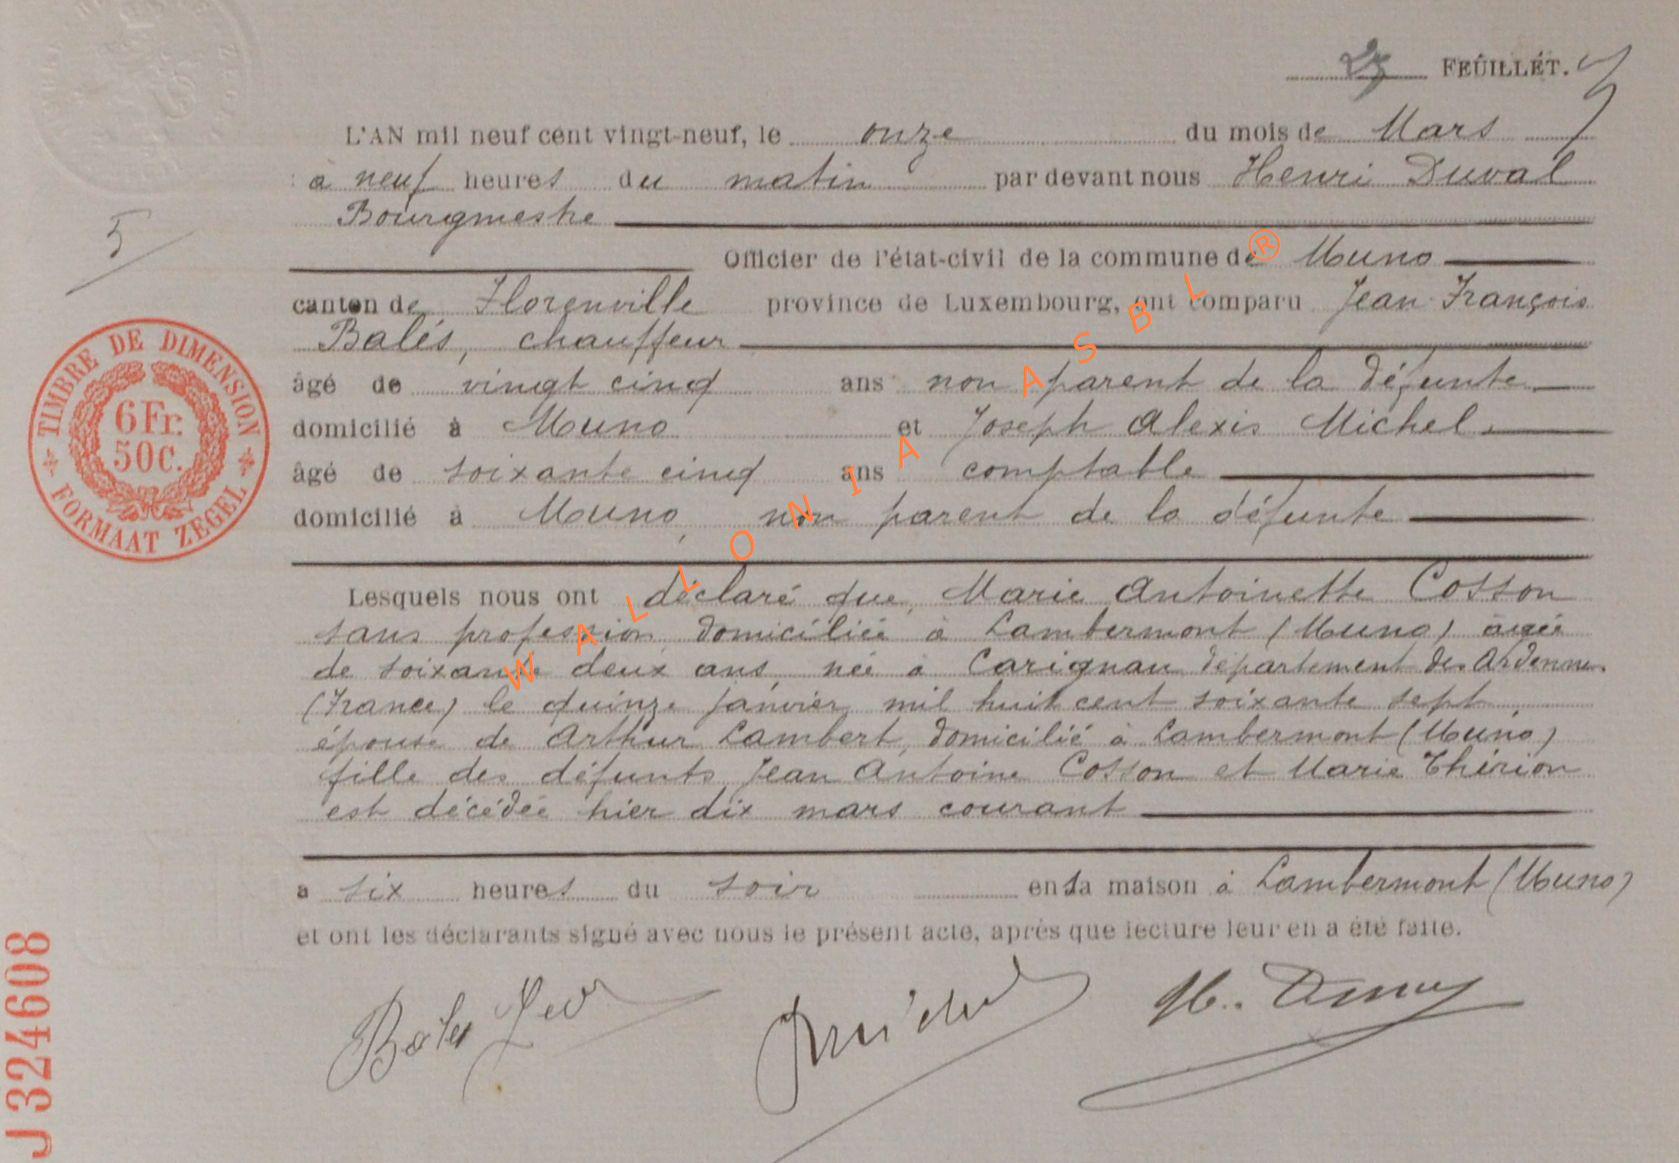 27 FEUILLET.
L'AN mil neuf cent vingt-neuf, le onze du mois de Mars
à neuf heures du matin par devant nous Henri Duval
Bourgmestre
5
Officier de l'état-civil de la commune de Muno
canton de Florenville province de Luxembourg, ont comparu Jean François
Balés, chauffeur
âgé de vingt cinq ans non parent de la défunte
domicilié à Muno et Joseph Alexis Michel
âgé de soixante cinq ans comptable
domicilié à Muno, non parent de la défunte
TIMBRE DE DIMENSION
6 Fr.
50 C.
FORMAAT ZEGEL
Lesquels nous ont déclaré que Marie Antoinette Cosson
sans profession, domiciliée à Lambermont (Muno) agée
de soixante deux ans, née à Carignan département des Ardennes
(France) le quinze janvier mil huit cent soixante sept,
épouse de Arthur Lambert, domicilié à Lambermont (Muno)
fille des défunts Jean Antoine Cosson et Marie Thirion
est décédée hier dix mars courant
a six heures du soir en sa maison à Lambermont (Muno)
et ont les déclarants signé avec nous le présent acte, après que lecture leur en a été faite.
J 324608
WALLONIA ASBL ®